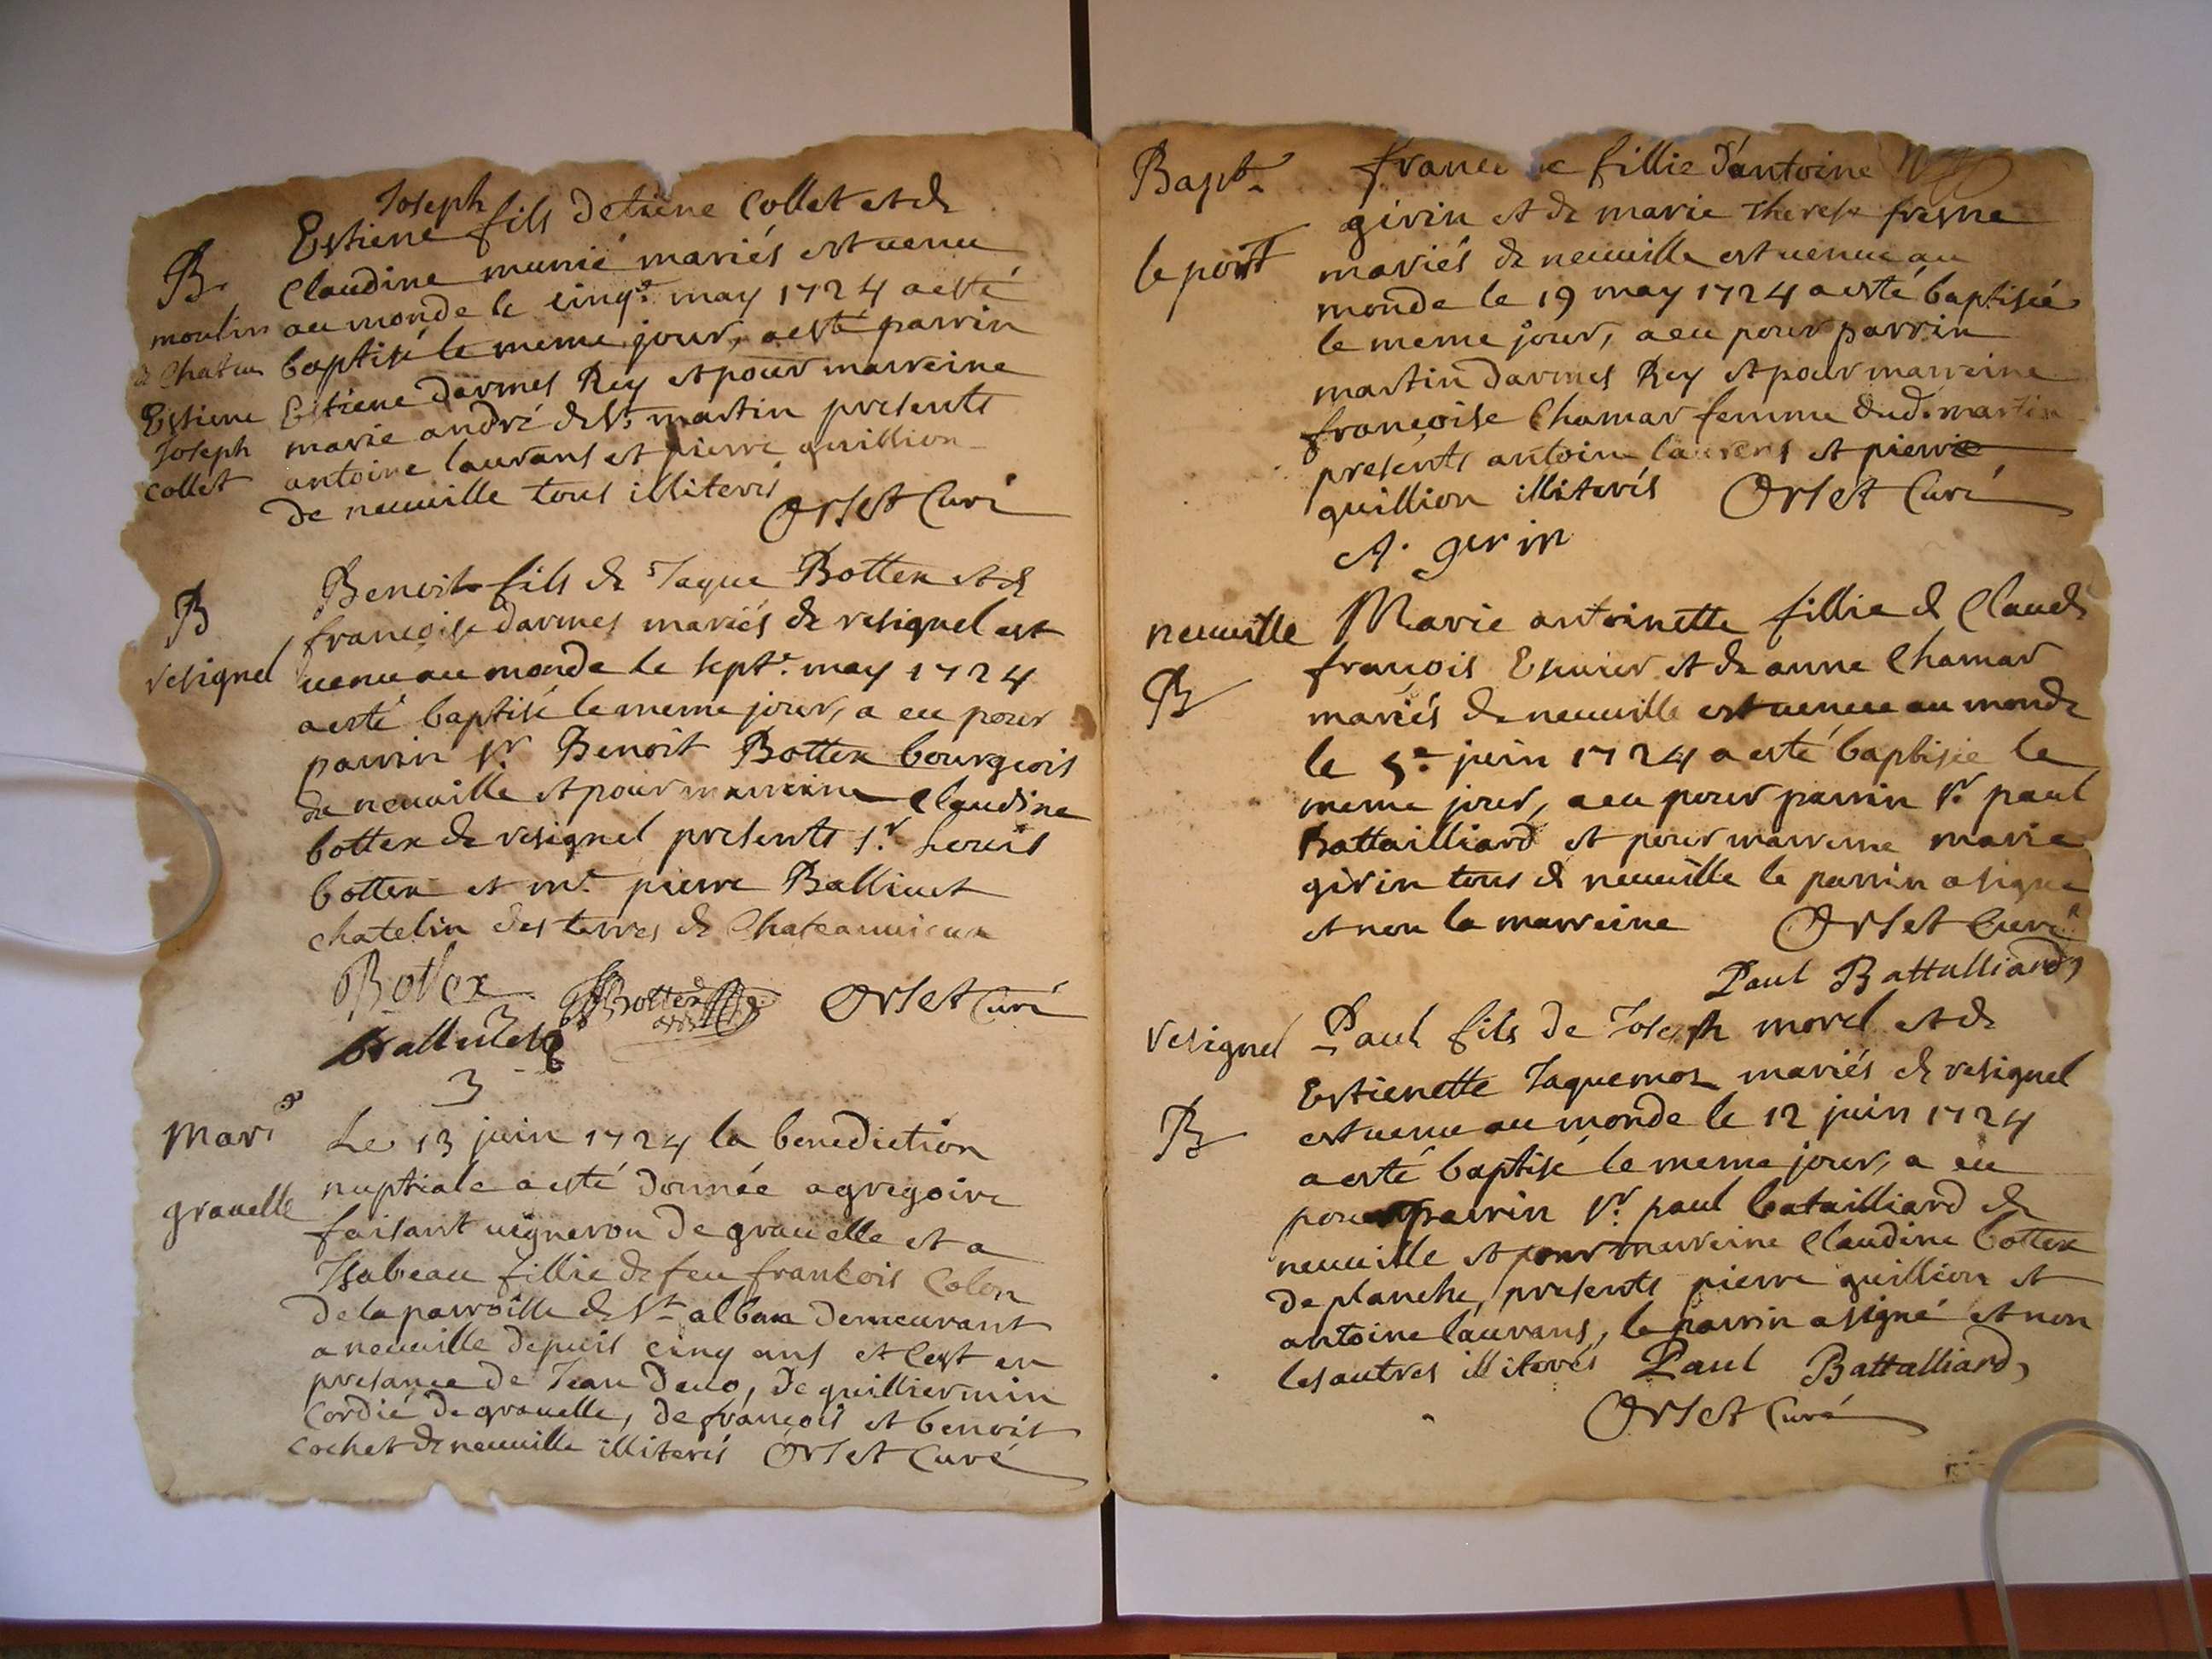 Joseph
Estiene fils detiene Collet et de
B.
Claudine munié mariés est uenu
moulin
au monde le cinq.e may 1724 a esté
de Chateu
baptisé le meme jour, a esté parrin
Estiene
Estiene darmes Rey et pour marreine
Joseph
marie andré de St. martin presents
collet
antoine laurans et pierre guillion
de neuuille tous illiterés
Orset Curé
B
Benoit fils de Jaque Bottex et de
francoise darmes mariés de resignel est
resignel
uenu au monde le sept.e may 1724
a esté baptisé le meme jour, a eu pour
parrin Sr. Benoit Bottex bourgeois
de neuuille et pour marreine Claudine
bottex de resignel presents Sr. Louis
bottex et me. pierre Balliuet
chatelin des terres de Chateauuieux
Botex
Bottex
Orset Curé
Balliuet
mari
Le 13 juin 1724 la benediction
nuptiale a esté donnée a gregoire
grauelle
faisant uigneron de grauelle et a
Isabeau fillie de feu francois Colon
de la parroisse de St alban demeurant
a neuuille depuis cinq ans et c'est en
presance de Jean deuo, de guilliermin
Cordié de grauelle, de françois et benoit
cochet de neuuille illiterés Orset Curé
Bapt.
fillie d'antoine
girin et de marie Therese fresne
le port
mariés de neuuille est uenue au
monde le 19 may 1724 a esté baptisée
le meme jour, a eu pour parrin
martin darmes Rey et pour marreine
françoise Chamar femme dud. martin
presents antoine laurens et pierre
guillion illiterés Orset Curé
A. girin
neuuille
Marie antoinette fillie de Claude
françois et de anne Chamar
B
mariés de neuuille est uenue au monde
le 5.e juin 1724 a esté baptisée le
meme jour, a eu pour parrin Sr. paul
Battailliard et pour marreine marie
girin tous de neuuille le parrin a signé
et non la marreine Orset Curé
Paul Battalliard
resignel
Paul fils de Joseph morel et de
Estienette Jaquemox mariés de resignel
B
est uenu au monde le 12 juin 1724
a esté baptisé le meme jour, a eu
pour parrin Sr. paul batailliard de
neuuille et pour marreine Claudine bottex
de planche, presents pierre guillion et
antoine laurans, le parrin a signé et non
les autres illiterés Paul Battalliard
Orset Curé